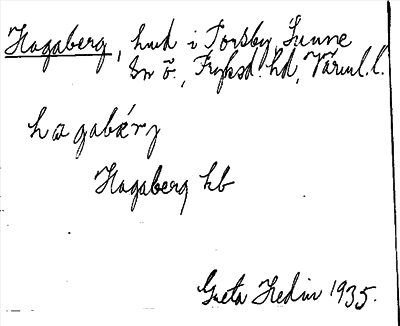 Hagaberg, hmd i Torsby, Sunne
sn ö., Fryksd. hd, Värml. l.
hagabærj
Hagaberg hb
Greta Hedin 1935.